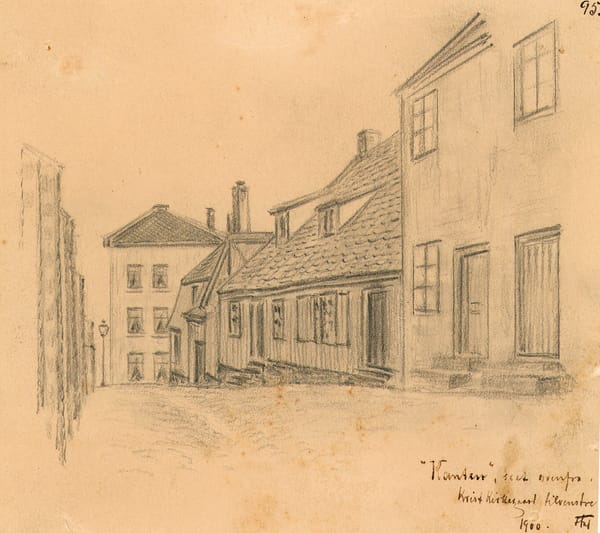 95.
"Kanten", seet ovenfra.
Krist Kirkegaard tilvenstre
1900.